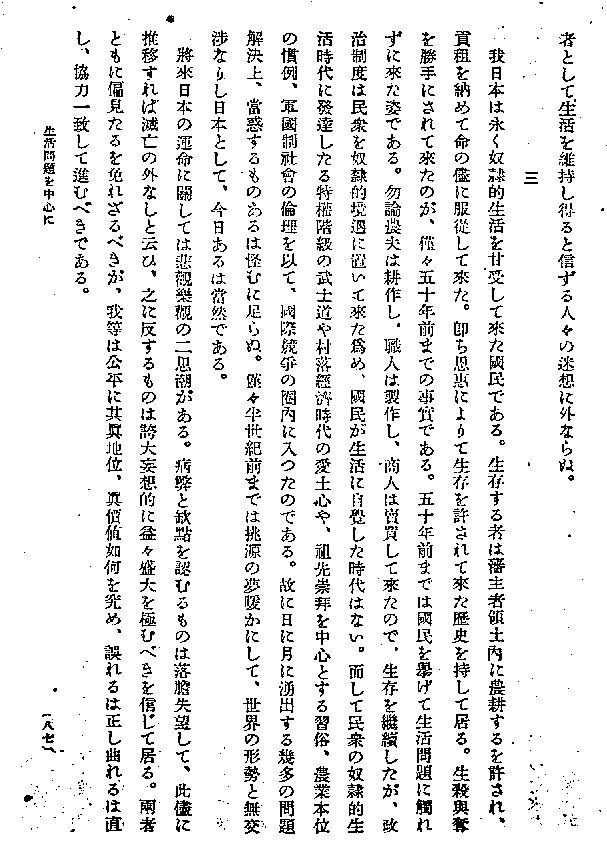 者として生活を維持し得ると信ずる人々の迷想に外ならぬ。
三
我日本は永く奴隷的生活を甘受して來た國民である。生存する者は藩主者領土內に農耕するを許され、
貢租を納めて命の儘に服從して來た。卽ち恩惠によりて生存を許されて來た歷史を持して居る。生殺與奪
を勝手にされて來たのが、僅々五十年前までの事實である。五十年前までは國民を擧げて生活問題に觸れ
ずに來た姿である。勿論農夫は耕作し、職人は製作し、商人は賣買して來たので、生存を繼續したが、政
治制度は民衆を奴隷的境遇に置いて來た爲め、國民が生活に自覺した時代はない。而して民衆の奴隷的生
活時代に發達したる特權階級の武士道や村落經濟時代の愛土心や、祖先崇拜を中心とする習俗、農業本位
の慣例、軍國制社會の倫理を以て、國際競爭の圈內に入つたのである。故に日に月に湧出する幾多の問題
解決上、當惑するものあるは怪むに足らぬ。僅々半世紀前までは桃源の夢暖かにして、世界の形勢と無交
涉なりし日本として、今日あるは當然である。
將來日本の運命に關しては悲觀樂觀の二思潮がある。病弊と缺點を認むるものは落膽失望して、此儘に
推移すれば滅亡の外なしと云ひ、之に反するものは誇大妄想的に益々盛大を極むべきを信じて居る。兩者
ともに偏見たるを免れざるべきが、我等は公平に其眞地位、眞價値如何を究め、誤れるは正し曲れるは直
し、協力一致して進むべきである。
生活問題を中心に
八七